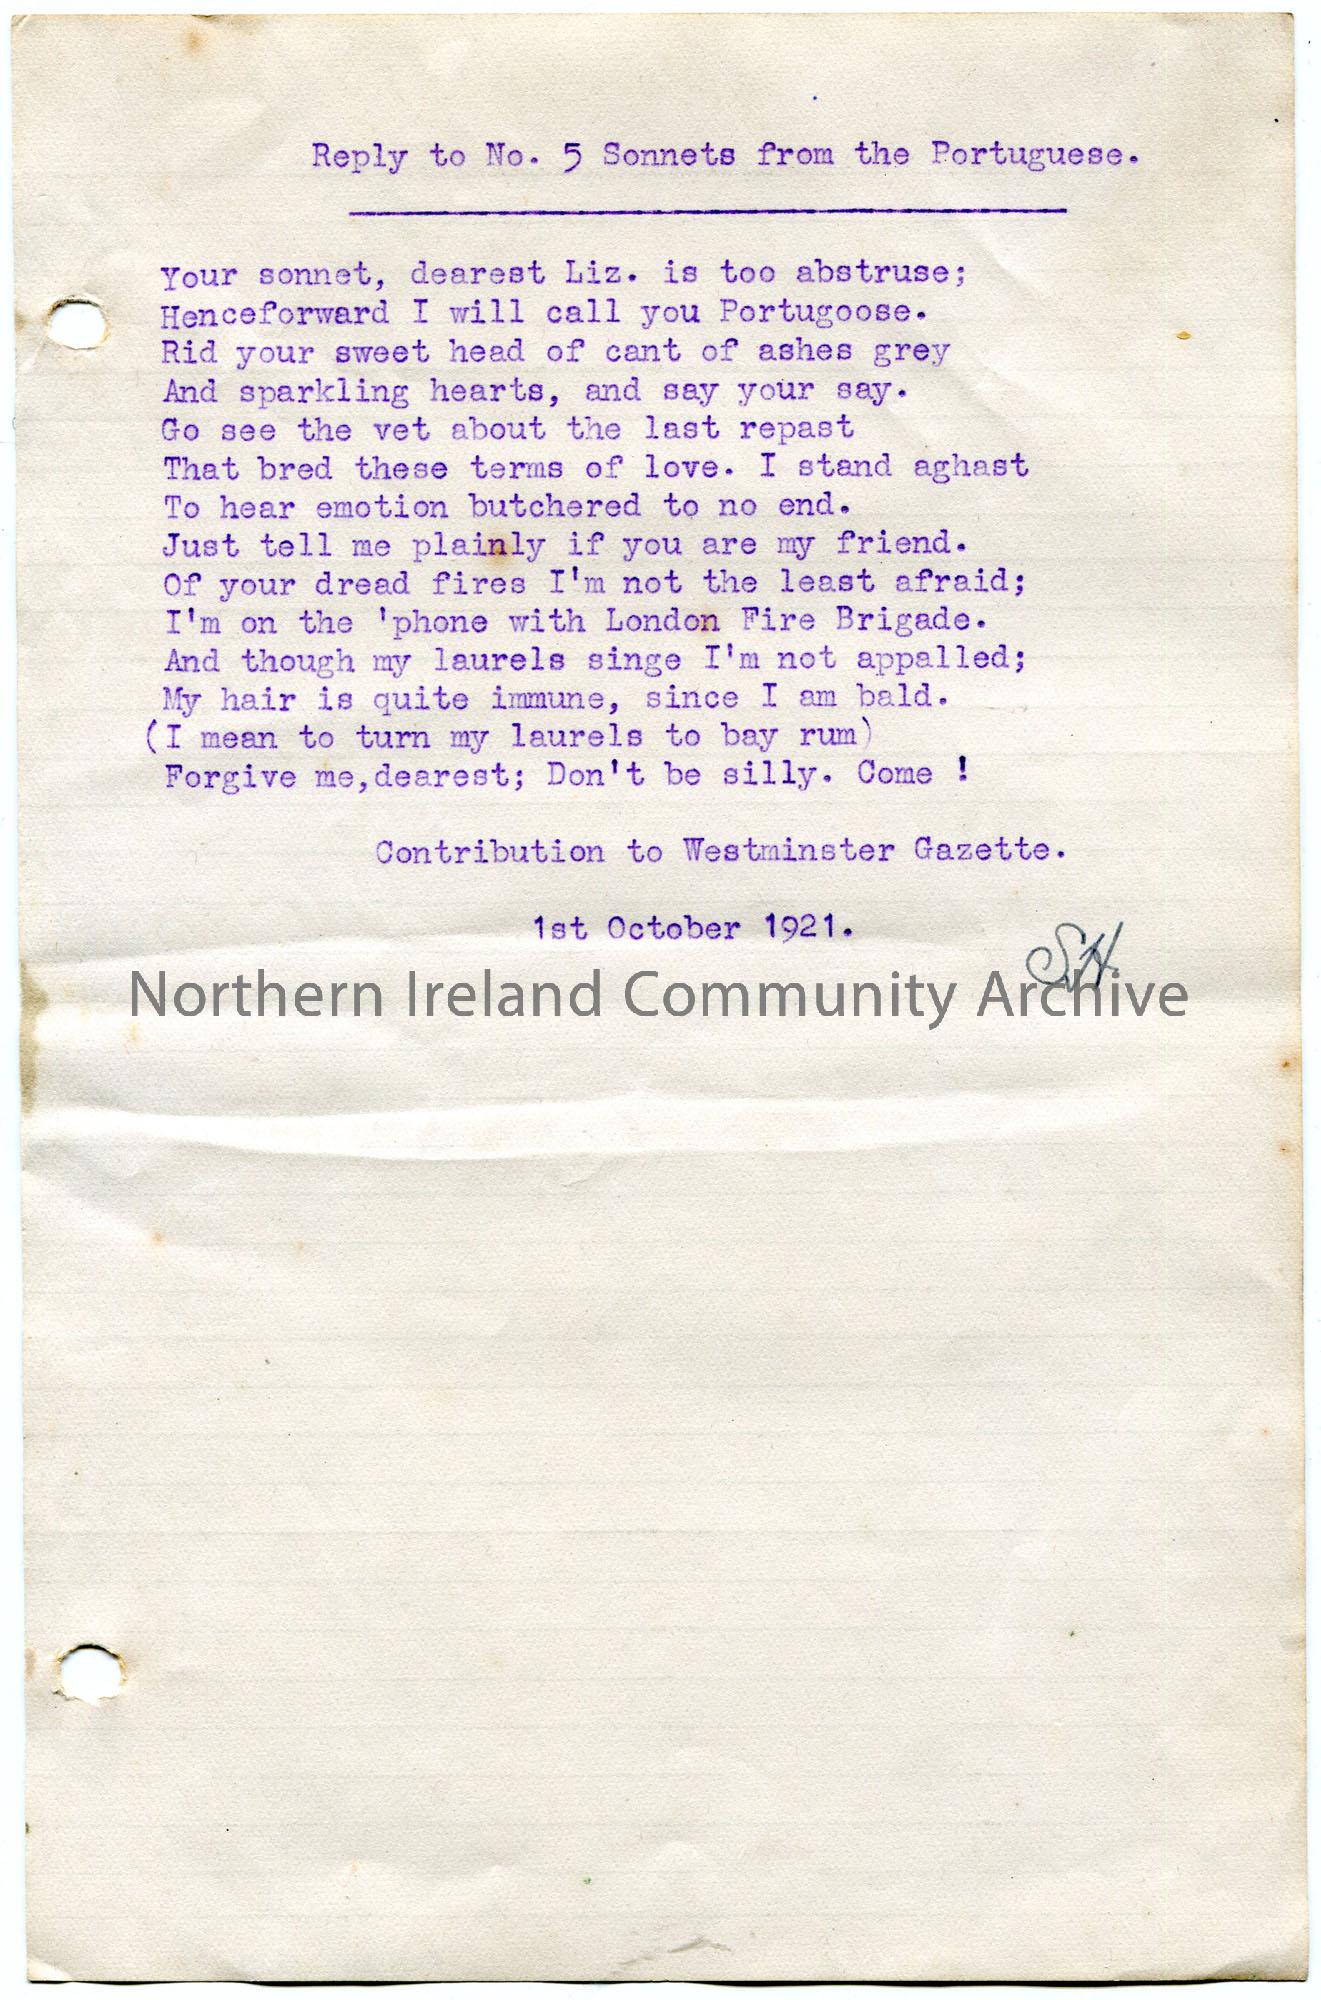 Reply to No. 5 Sonnets from the Portuguese.
Your sonnet, dearest Liz. is too abstruse;
Henceforward I will call you Portugoose.
Rid your sweet head of cant of ashes grey
And sparkling hearts, and say your say.
Go see the vet about the last repast
That bred these terms of love. I stand aghast
To hear emotion butchered to no end.
Just tell me plainly if you are my friend.
Of your dread fires I'm not the least afraid;
I'm on the 'phone with London Fire Brigade.
And though my laurels singe I'm not appalled;
My hair is quite immune, since I am bald.
(I mean to turn my laurels to bay rum)
Forgive me,dearest; Don't be silly. Come !
Contribution to Westminster Gazette.
1st October 1921.
S.H.
Northern Ireland Community Archive